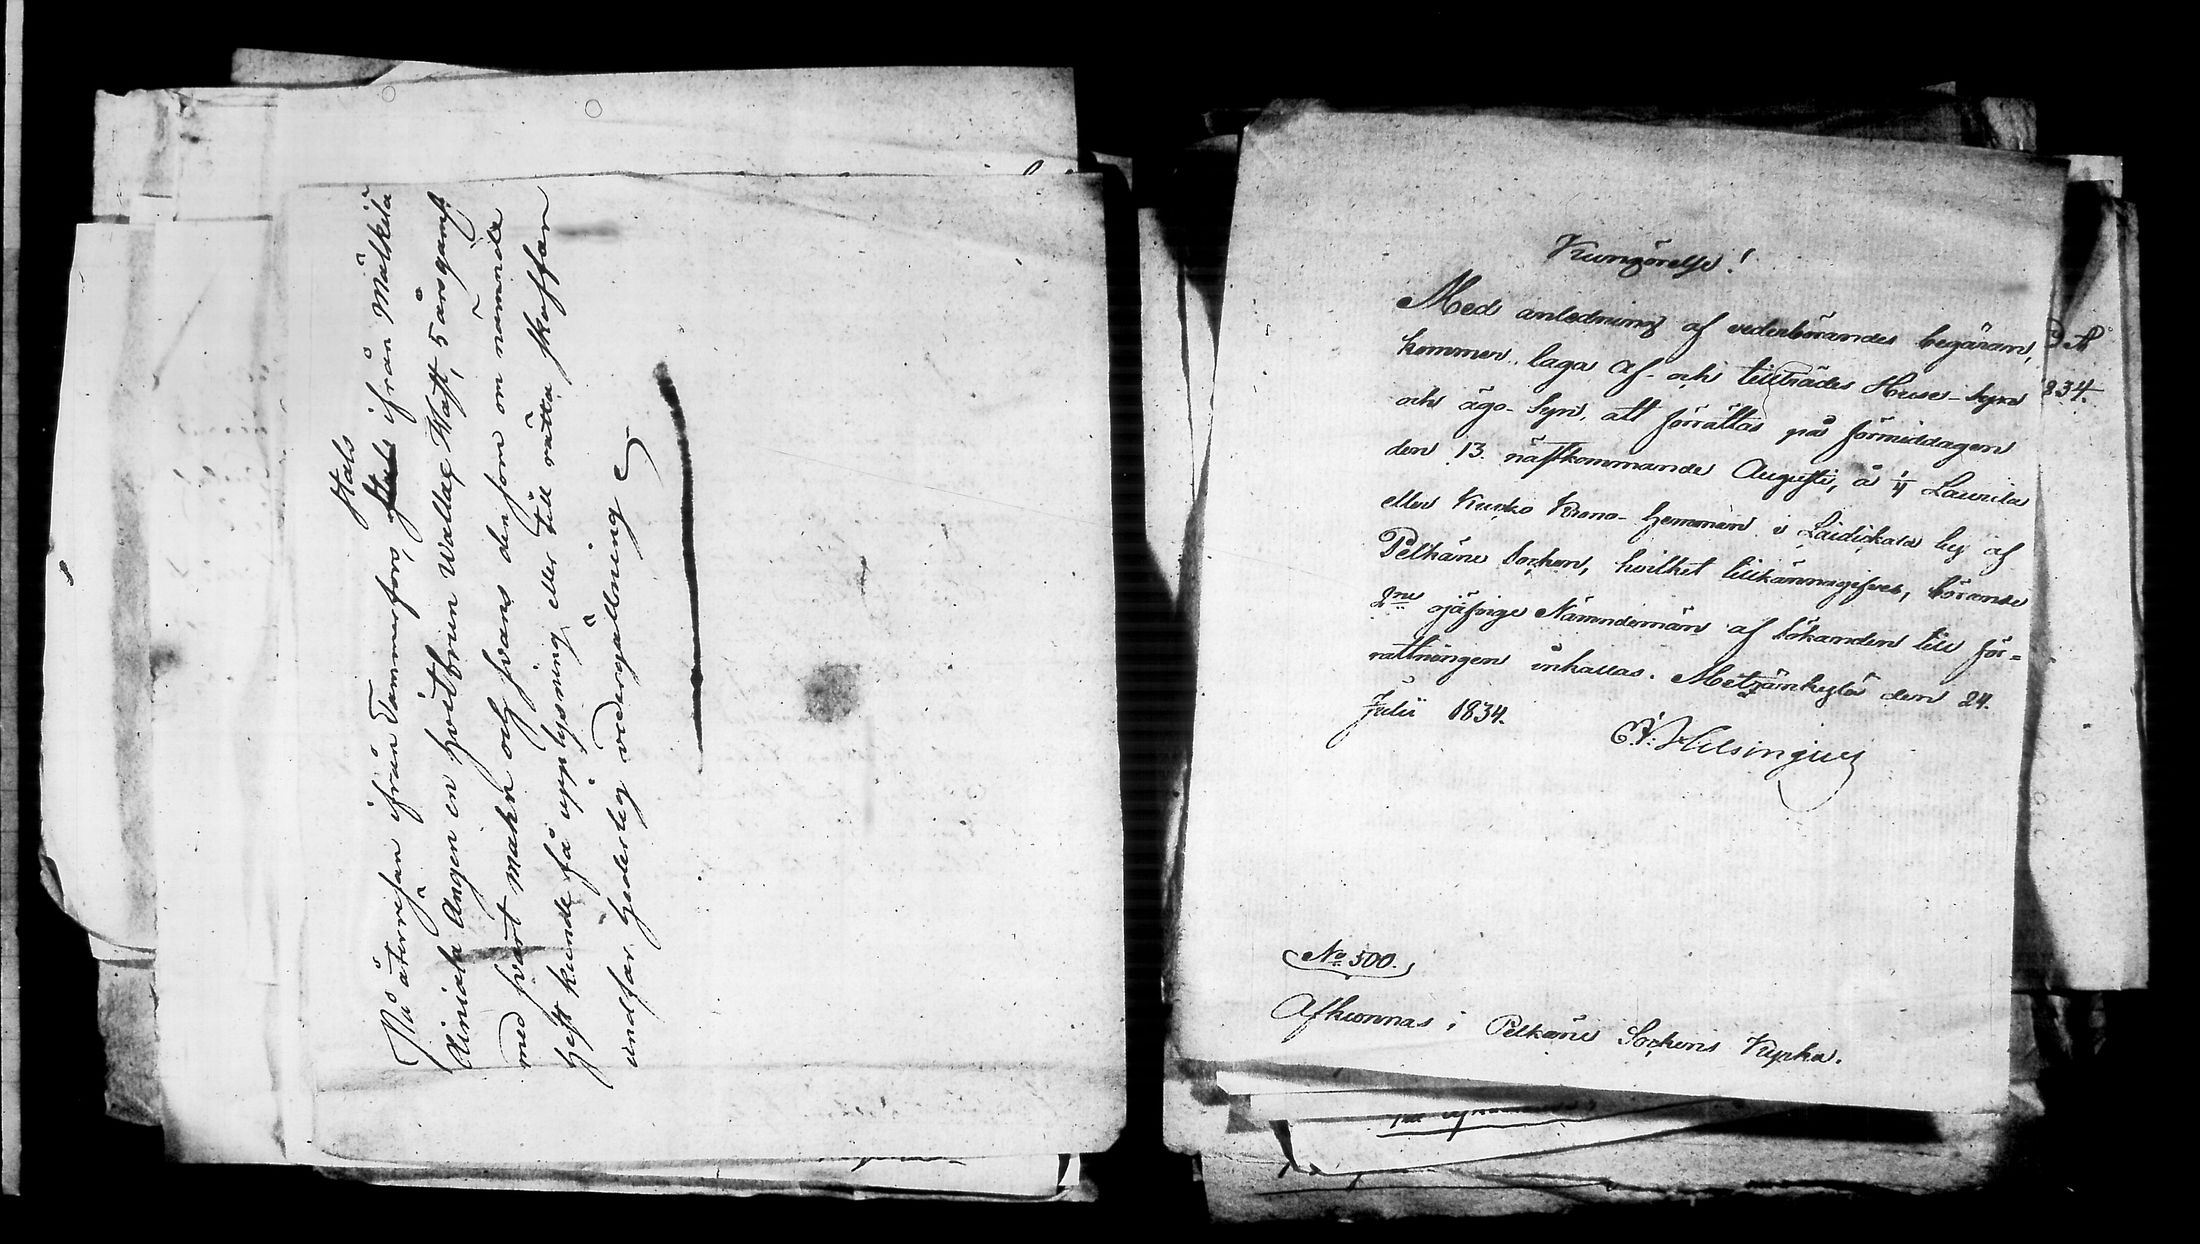 stals
På återresan ifrån Tammerfors, ifrån Mälkilä
Ängen en hvitbrun Wallag Häst, 5 års gamt
med svart mahn och svans den som om nämnde
hest kunde få upplysning eller till rätta skaffar
undfår hederlig vedergällning
Kungörelse!
Med anledning af vederbörandes begäran,
kommer laga Af- och tillträdes Huse-Syn
och ägo-Syn, att förrättas på förmiddagen
den 13. nästkommande Augusti, å 1/4 Laurila
eller Kusko Krono-hemman i Laidickala by af
Pelkäne Socken, hvilket tillkännagifves, börande
2ne ojäfvige Nämndemän af sökanden till för=
rättningen inkallas. den 24.
Julii 1834.
Helsingius
No 500.
Afkunnas i Pelkäne Sockens Kyrka.
834.